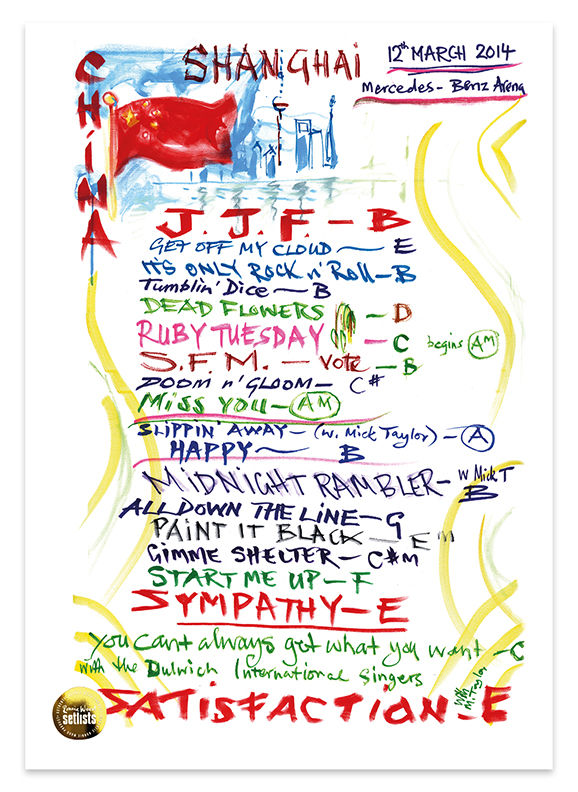 SHANGHAI
12th MARCH 2014
Mercedes - Benz Arena
CHINA
J.J.F. - B
GET OFF MY CLOUD — E
IT'S ONLY ROCK n' Roll - B
Tumblin' Dice - B
DEAD FLOWERS - D
RUBY TUESDAY - C begins AM
S.F.M. - VOTE - B
DOOM n' GLOOM - C#
MISS YOU - AM
SLIPPIN' AWAY - (w. Mick Taylor) - A
HAPPY - B
MIDNIGHT RAMBLER - w Mick T
B
ALL DOWN THE LINE - G
PAINT IT BLACK - E m
GIMME SHELTER - C#M
START ME UP - F
SYMPATHY - E
you cant always get what you want - C
with the Dulwich International singers
with M. Taylor
SATISFACTION - E
Ronnie Wood
setlists